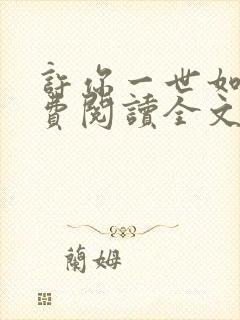 許你一世如
費閱讀全文
蘭姆